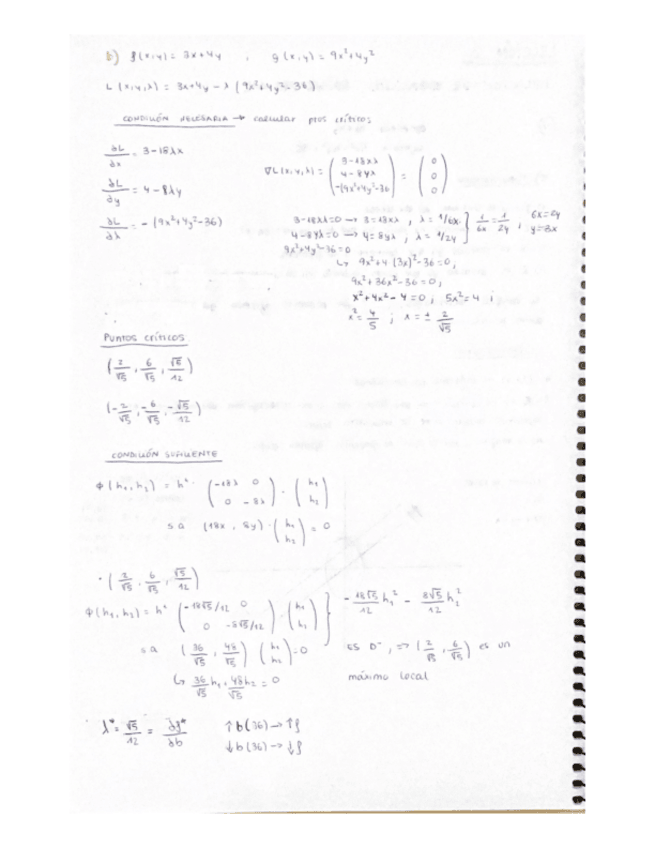 b) f(x,y) = 3x+4y , g(x,y) = 9x²+4y²
L(x,y,λ) = 3x+4y - λ (9x²+4y²-36)
CONDICIÓN NECESARIA → calcular ptos críticos
∂L/∂x = 3-18λx
∂L/∂y = 4-8λy
∂L/∂λ = -(9x²+4y²-36)
∇L(x,y,λ) = (3-18xλ, 4-8yλ, -(9x²+4y²-36) = (0, 0, 0)
3-18xλ=0 → 3=18xλ , λ = 1/6x
4-8yλ=0 → 4=8yλ , λ = 1/2y } 1/6x = 1/2y ; 6x=2y y=3x
9x²+4y²-36=0
↳ 9x²+4(3x)²-36=0;
9x²+36x²-36=0;
x²+4x²-4=0; 5x²=4;
x²=4/5 ; x=± 2/√5
PUNTOS CRÍTICOS
(2/√5, 6/√5, √5/12)
(-2/√5, -6/√5, -√5/12)
CONDICIÓN SUFICIENTE
Φ(h₁,h₂) = hᵗ · (-18λ 0, 0 -8λ) · (h₁, h₂)
s.a (18x, 8y) · (h₁, h₂) = 0
· (2/√5, 6/√5, √5/12)
Φ(h₁,h₂) = hᵗ (-18√5/12 0, 0 -8√5/12) · (h₁, h₂) } -18√5/12 h₁² - 8√5/12 h₂²
s.a (36/√5, 48/√5) (h₁, h₂) = 0
ES D⁻, => (2/√5, 6/√5) es un
↳ 36/√5 h₁ + 48h₂/√5 = 0
máximo local
λ* = √5/12 = ∂f*/∂b
↑b(36) → ↑f
↓b(36) → ↓f